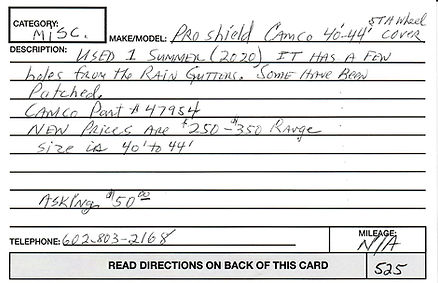 CATEGORY:
MISC.
MAKE/MODEL: PRO shield CAMCO 40'-44' 5TH Wheel COVER
DESCRIPTION: USED 1 SUMMER (2020) IT HAS A FEW
holes from the RAIN GUTTERS. SOME HAVE BEEN
Patched.
CAMCO Part # 47954
NEW PRICES ARE $250-$350 RANGE
size is 40' to 44'
ASKING $50.00
TELEPHONE: 602-803-2168
MILEAGE:
N/A
READ DIRECTIONS ON BACK OF THIS CARD
525